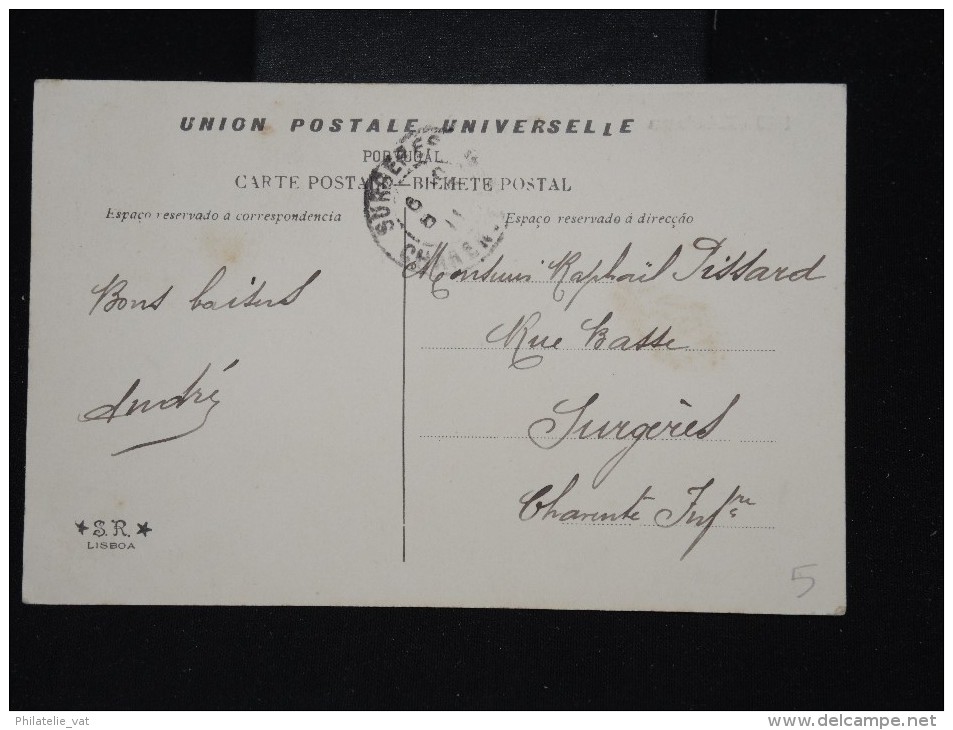 UNION POSTALE UNIVERSELLE
PORTUGAL
CARTE POSTALE—BILHETE POSTAL
Espaço reservado á correspondencia
Espaço reservado á direcção
SURGERES
Bons baisers
André
Monsieur Raphaël Pissard
Rue Basse
Surgères
Charente Infre
★ S. R. ★
LISBOA
5
Philatelie_vat
www.delcampe.net